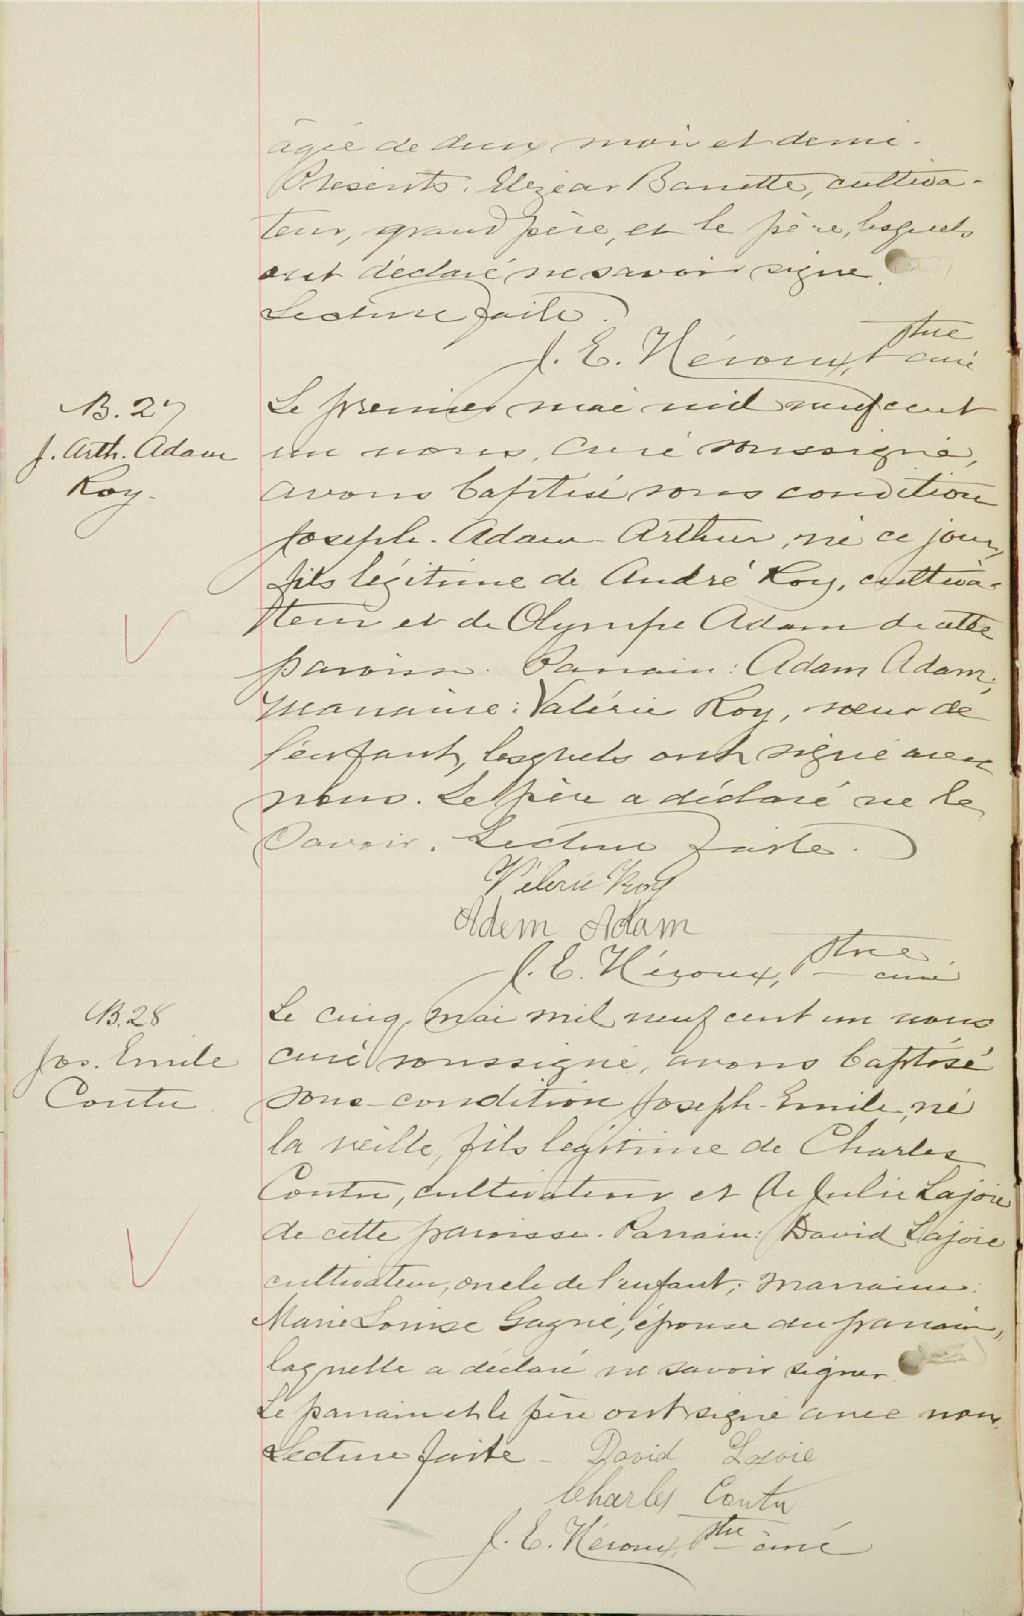 âgée de deux mois et demi.
Présents: Elzéar Barrette, cultiva-
teur, grand père, et le père, lesquels
ont déclaré ne savoir signe.
Lecture faite.
J. E. Héroux, Ptre
curé
B. 27
J. Arth. Adam
Roy.
Le premier mai mil neuf cent
un nous, curé soussigné,
avons baptisé sous condition
Joseph-Adam-Arthur, né ce jour,
fils légitime de André Roy, cultiva-
teur et de Olympe Adam de cette
paroisse. Parrain: Adam Adam;
marraine: Valérie Roy, sœur de
l'enfant, lesquels ont signé avec
nous. Le père a déclaré ne le
savoir. Lecture faite.
Vélerie Roy
Adem Adam
J. E. Héroux, Ptre
curé
B. 28
Jos. Emile
Coutu
Le cinq mai mil neuf cent un nous
curé soussigné, avons baptisé
sous condition Joseph-Emile, né
la veille, fils légitime de Charles
Coutu, cultivateur et de Julie Lajoie
de cette paroisse. Parrain: David Lajoie
cultivateur, oncle de l'enfant; marraine:
Marie Louise Gagné, épouse du parrain,
laquelle a déclaré ne savoir signer.
Le parrain et le père ont signé avec nous.
Lecture faite - David Lajoie
Charles Coutu
J. E. Héroux, Ptre curé